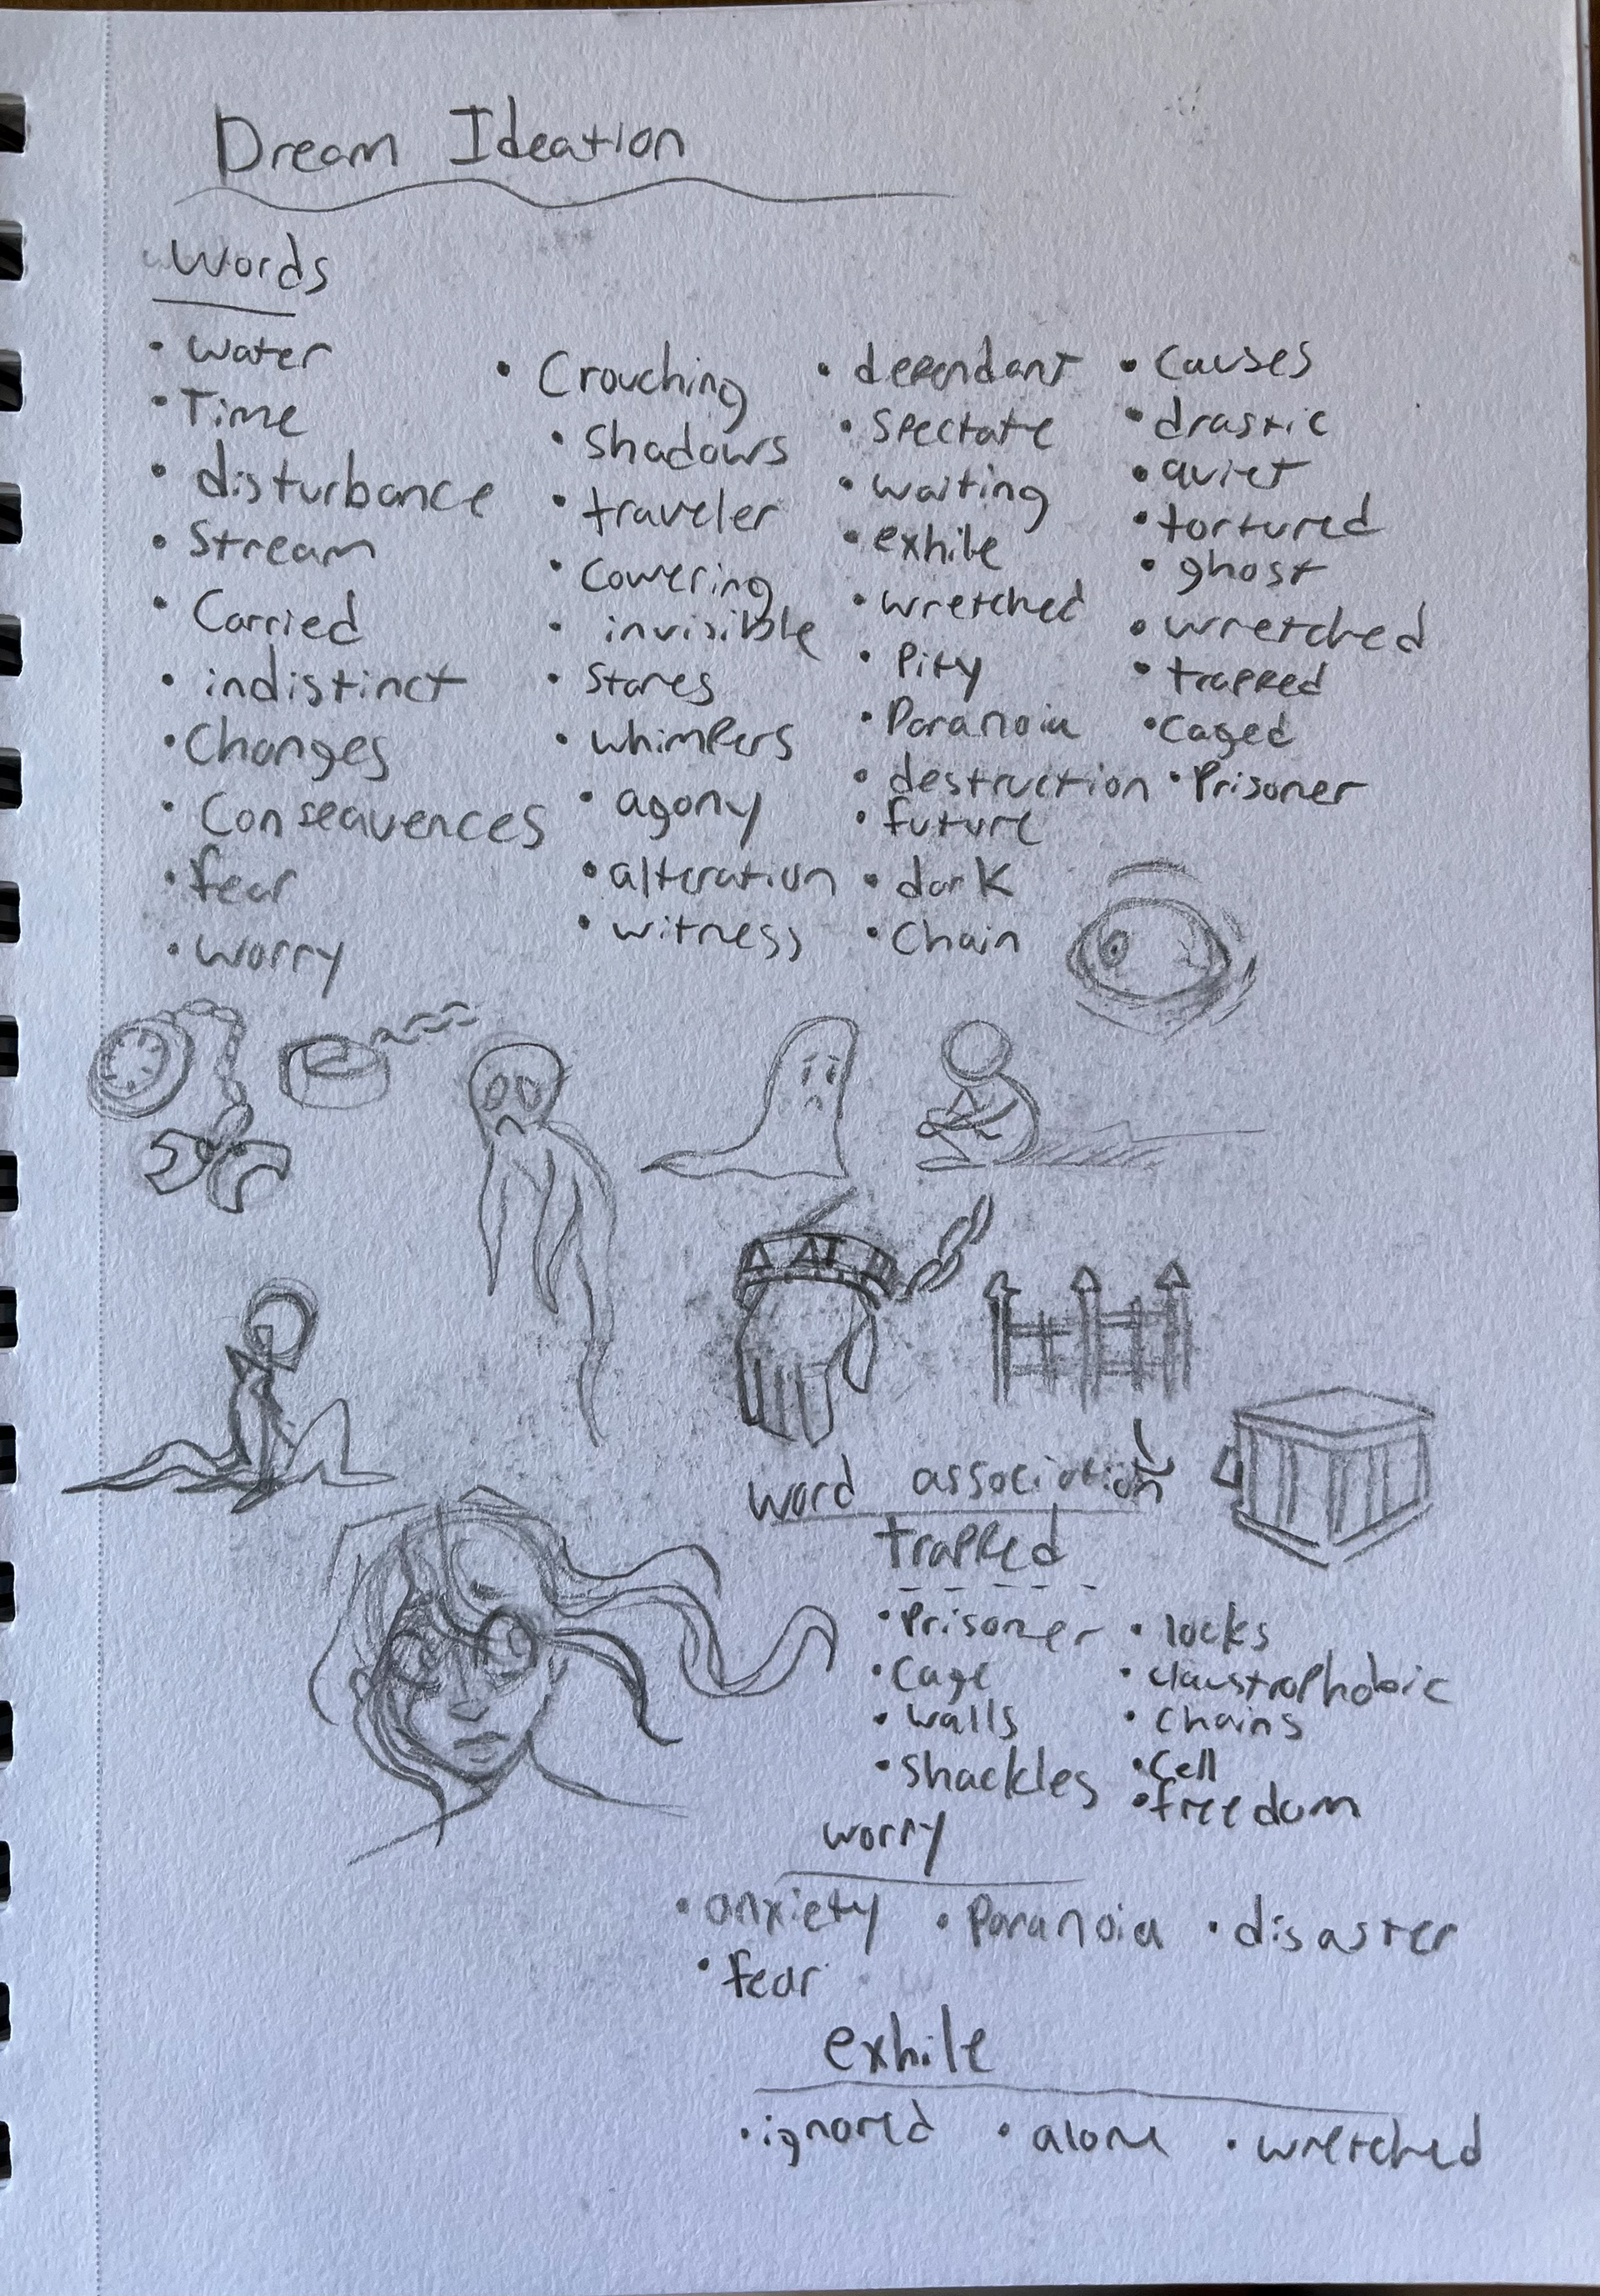 Dream Ideation
Words
• water
• Time
• disturbance
• Stream
• Carried
• indistinct
• Changes
• Consequences
• fear
• worry
• Crouching
• Shadows
• traveler
• Cowering
• invisible
• Stares
• whimpers
• agony
• alteration
• witness
• dependant
• Spectate
• waiting
• exhile
• wretched
• Pity
• Paranoia
• destruction
• future
• dark
• Chain
• Causes
• drastic
• quiet
• tortured
• ghost
• wretched
• trapped
• Caged
• Prisoner
word association
trapped
• Prisoner
• Cage
• walls
• Shackles
• locks
• claustrophobic
• Chains
• Cell
• freedom
worry
• anxiety • Paranoia • disaster
• fear
exhile
• ignored • alone • wretched